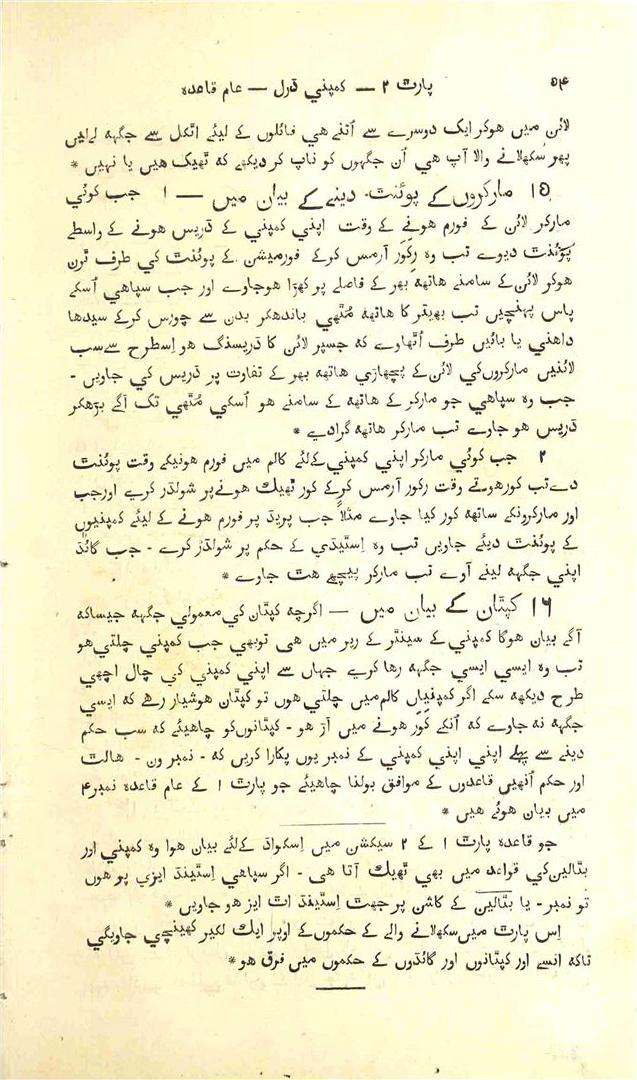 پارٹ ۲ — کمپني ڈرل — عام قاعده ۵۴
لائن میں هوکر ایک دوسرے سے اُتنے هي فائلوں کے لیئے اٹکل سے جگهه لےلیں
پھر سکھلانے والا آپ هي اُن جگہوں کو ناپ کر دیکھے که ٹھیک هیں یا نہیں *
۱۵ مارکروں کے پوئنٹ دینے کے بیان میں — ۱ جب کوئي
مارکر لائن کے فورم هونے کے وقت اپني کمپني کے ڈریس هونے کے واسطے
پوَئنٹ دیوے تب وه رِکَوَر آرمس کرکے فورمیشن کے پوئنٹ کي طرف ٹرن
هوکر لائن کے سامنے هاتهه بھر کے فاصلے پر کھڑا هوجاوے اور جب سپاهي اُسکے
پاس پہنچیں تب بھیتر کا هاتهه مُٹھي باندھکر بدن سے چورس کرکے سیدھا
داهني یا بائیں طرف اُٹھاوے که جسپر لائن کا ڈریسنگ هو اِسطرح سےسب
لائنیں مارکروں کي لائن کے پچھاڑي هاتهه بھر کے تفاوت پر ڈریس کي جاویں -
جب وه سپاهي جو مارکر کے هاتهه کے سامنے هو اُسکي مُٹھي تک آگے بڑھکر
ڈریس هو جاوے تب مارکر هاتهه گرادے *
۲ جب کوئي مارکر اپني کمپني کےلئے کالم میں فورم هونیکے وقت پوئنٹ
دے تب کور هوتے وقت رکور آرمس کرکے کور ٹھیك هونے پر شولڈر کرے اورجب
اور مارکرونکے ساتهه کور کیا جاوے مثلاً جب پریڈ پر فورم هونے کے لیئے کمپنیوں
کے پوئنٹ دیئے جاویں تب وه اِسٹیڈي کے حکم پر شولڈر کرے - جب گائڈ
اپني جگهه لینے آوے تب مارکر پیچھے هٹ جاوے *
۱۶ کپتان کے بیان میں — اگرچه کپتان کي معمولي جگهه جیساکه
آگے بیان هوگا کمپني کے سینٹر کے ریر میں هی توبھي جب کمپني چلتي هو
تب وه ایسي ایسي جگهه رها کرے جہاں سے اپني کمپني کي چال اچھي
طرح دیکهه سکے اگر کمپنیاں کالم میں چلتي هوں تو کپتان هوشیار رهے که ایسي
جگهه نه جاوے که اُنکے کَوَر هونے میں آڑ هو - کپتانوں کو چاهیئے که سب حکم
دینے سے پہلے اپني اپني کمپني کے نمبر یوں پکارا کریں که - نمبر ون - هالٹ
اور حکم اُنھیں قاعدوں کے موافق بولنا چاهیئے جو پارٹ ۱ کے عام قاعده نمبر ۴
میں بیان هوئے هیں *
جو قاعده پارٹ ۱ کے ۲ سیکشن میں اِسکواڈ کےلئے بیان هوا وه کمپني اور
بٹالین کي قواعد میں بھي ٹھیك آتا هی - اگر سپاهي اِسٹینڈ ایزي پر هوں
تو نمبر - یا بٹالین کے کاشن پر جھٹ اِسٹینڈ اٹ ایز هو جاویں *
اِس پارٹ میں سکھلانے والے کے حکموں کے اوپر ایك لکیر کھینچي جاویگي
تاکه اُنسے اور کپتانوں اور گائڈوں کے حکموں میں فرق هو *